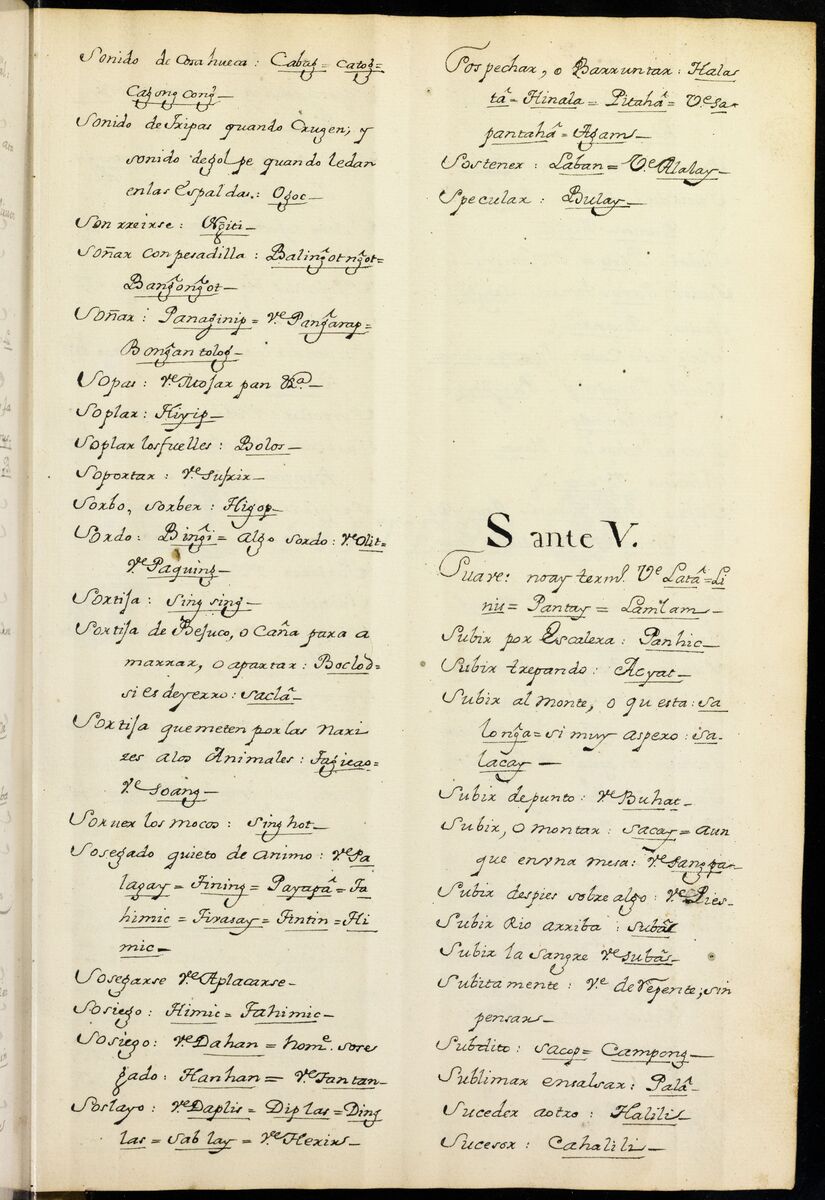 Sonido de Cosa hueca: Cabag= catog=
Cagong cong̃—
Sonido de Tripas quando Crugen; y
sonido de gol pe quando le dan
en las Espaldas.: Ogoc—
Son rreirse: Ng̃iti—
Soñar con pesadilla: Baling̃ot ng̃ot=
Bang̃ong̃ot—
Soñar: Panaginip= Vᵉ Pang̃arap=
Bong̃an tolog—
Sopas: Vᵉ Mojar pan &ᵃ.—
Soplar: Hiyip—
Soplar los fuelles: Bolos—
Soportar: Vᵉ sufrir—
Sorbo, sorber: Higop—
Sordo: Bing̃i= algo sordo: Vᵉ Olit=
Vᵉ Paquing—
Sortija: Sing sing—
Sortija de Bejuco, o Caña para a
marrar, o apartar: Boclod=
si es de yerro: saclâ—
Sortija que meten por las nari
zes a los Animales: Tagicao=
Vᵉ soang—
Sorver los mocos: Sing hot—
Sosegado quieto de animo: Vᵉ Pa
lagay= Tining= Payapâ= Ta
himic= Tirasay= Tintin= Hi
mic—
Sosegarse Vᵉ Aplacarse—
Sosiego: Himic= Tahimic—
Sosiego: Vᵉ Dahan= homᵉ. sose
gado: Hanhan= Vᵉ Tantan—
Soslayo: Vᵉ Daplis= Dip las= Ding
las= Sab lay= Vᵉ Herir—
Sospechar, o Barruntar: Halas
tâ= Hinala= Pitahâ= Vᵉ sa-
pantahâ= Agam—
Sostener: Laban= Vᵉ Alalay—
Specular: Bulay—
S ante V.
Suave: no ay termº. Vᵉ Latâ= Li
nis= Pantay= Lamlam—
Subir por Escalera: Panhic—
Subir trepando: Acyat—
Subir al monte, o qu esta: Sa
long̃a= si muy aspero: Sa-
lacay—
Subir de punto: Vᵉ Buhat—
Subir, o montar: Sacay= aun
que en vna mesa: Vᵉ sangpa—
Subir de pies sobre algo: Vᵉ Pies—
Subir Rio arriba: subâ
Subir la Sangre Vᵉ subâ—
Subitamente: Vᵉ de repente; sin
pensar—
Subdito: Sacop= Campong—
Sublimar ensalsar: Palâ—
Suceder a otro: Halili—
Sucesor: Cahalili—